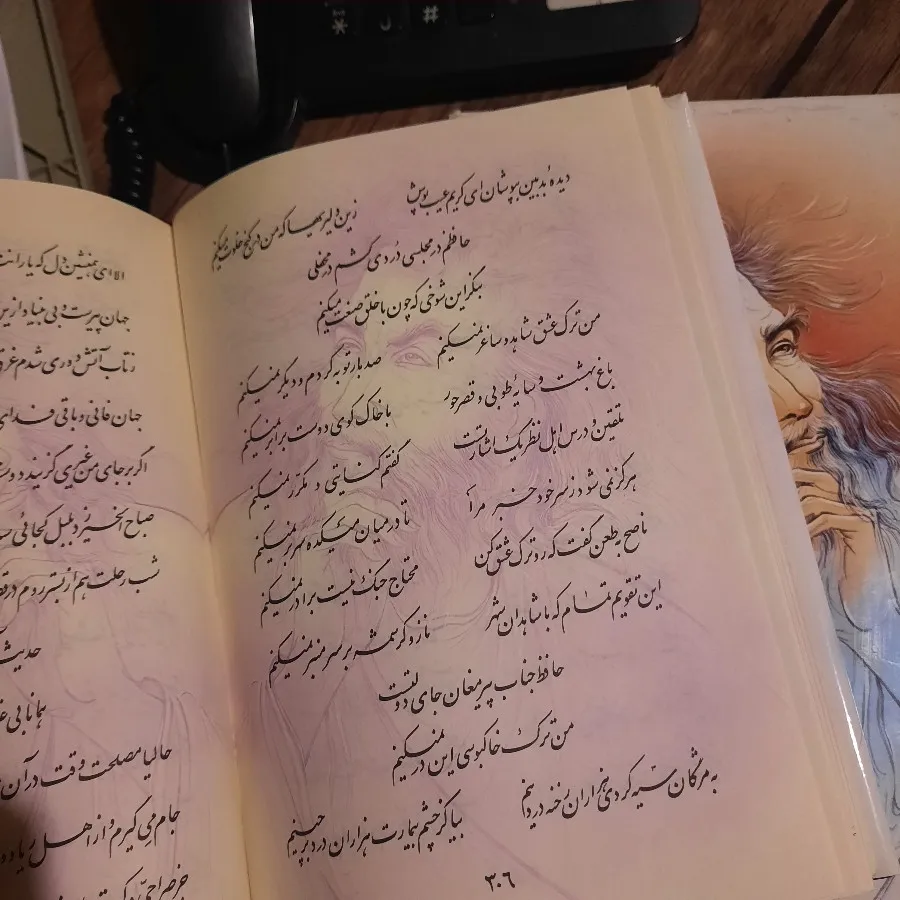 دیدهٔ بدبین بپوشان ای کریم عیب پوش
زین دلیریها که من در کنج خلوت میکنم
حافظم در مجلسی دُردی کشم در محفلی
بنگر این شوخی که چون با خلق صنعت میکنم
من ترک عشق شاهد و ساغر نمیکنم
صد بار توبه کردم و دیگر نمیکنم
باغ بهشت و سایهٔ طوبی و قصر حور
با خاک کوی دوست برابر نمیکنم
تلقین و درس اهل نظر یک اشارتست
گفتم کنایتی و مکرر نمیکنم
هرگز نمی شود ز سر خود خبر مرا
تا در میان میکده سر بر نمیکنم
ناصح بطعن گفت که رو ترک عشق کن
محتاج جنگ نیست برادر نمیکنم
این تقویم تمام که با شاهدان شهر
ناز و کرشمه بر سر منبر نمیکنم
حافظ جناب پیر مغان جای دولتست
من ترک خاکبوسی این در نمیکنم
به مژگان سیه کردی هزاران رخنه در دینم
بیا کز چشم بیمارت هزاران درد برچینم
۳۰۶
الا ای همنشین دل که یارانت
جهان پیرست و بی بنیاد ازین
ز تاب آتش دوری شدم غرق
جهان فانی و باقی فدای
اگر بر جای من غیری گزیند دوست
صباح الخیر زد بلبل کجائی
شب رحلت هم از بستر روم در
حدیث
همانا بی
حالیا مصلحت وقت در آن
جام می گیرم و از اهل ریا دور
جز صراحی و